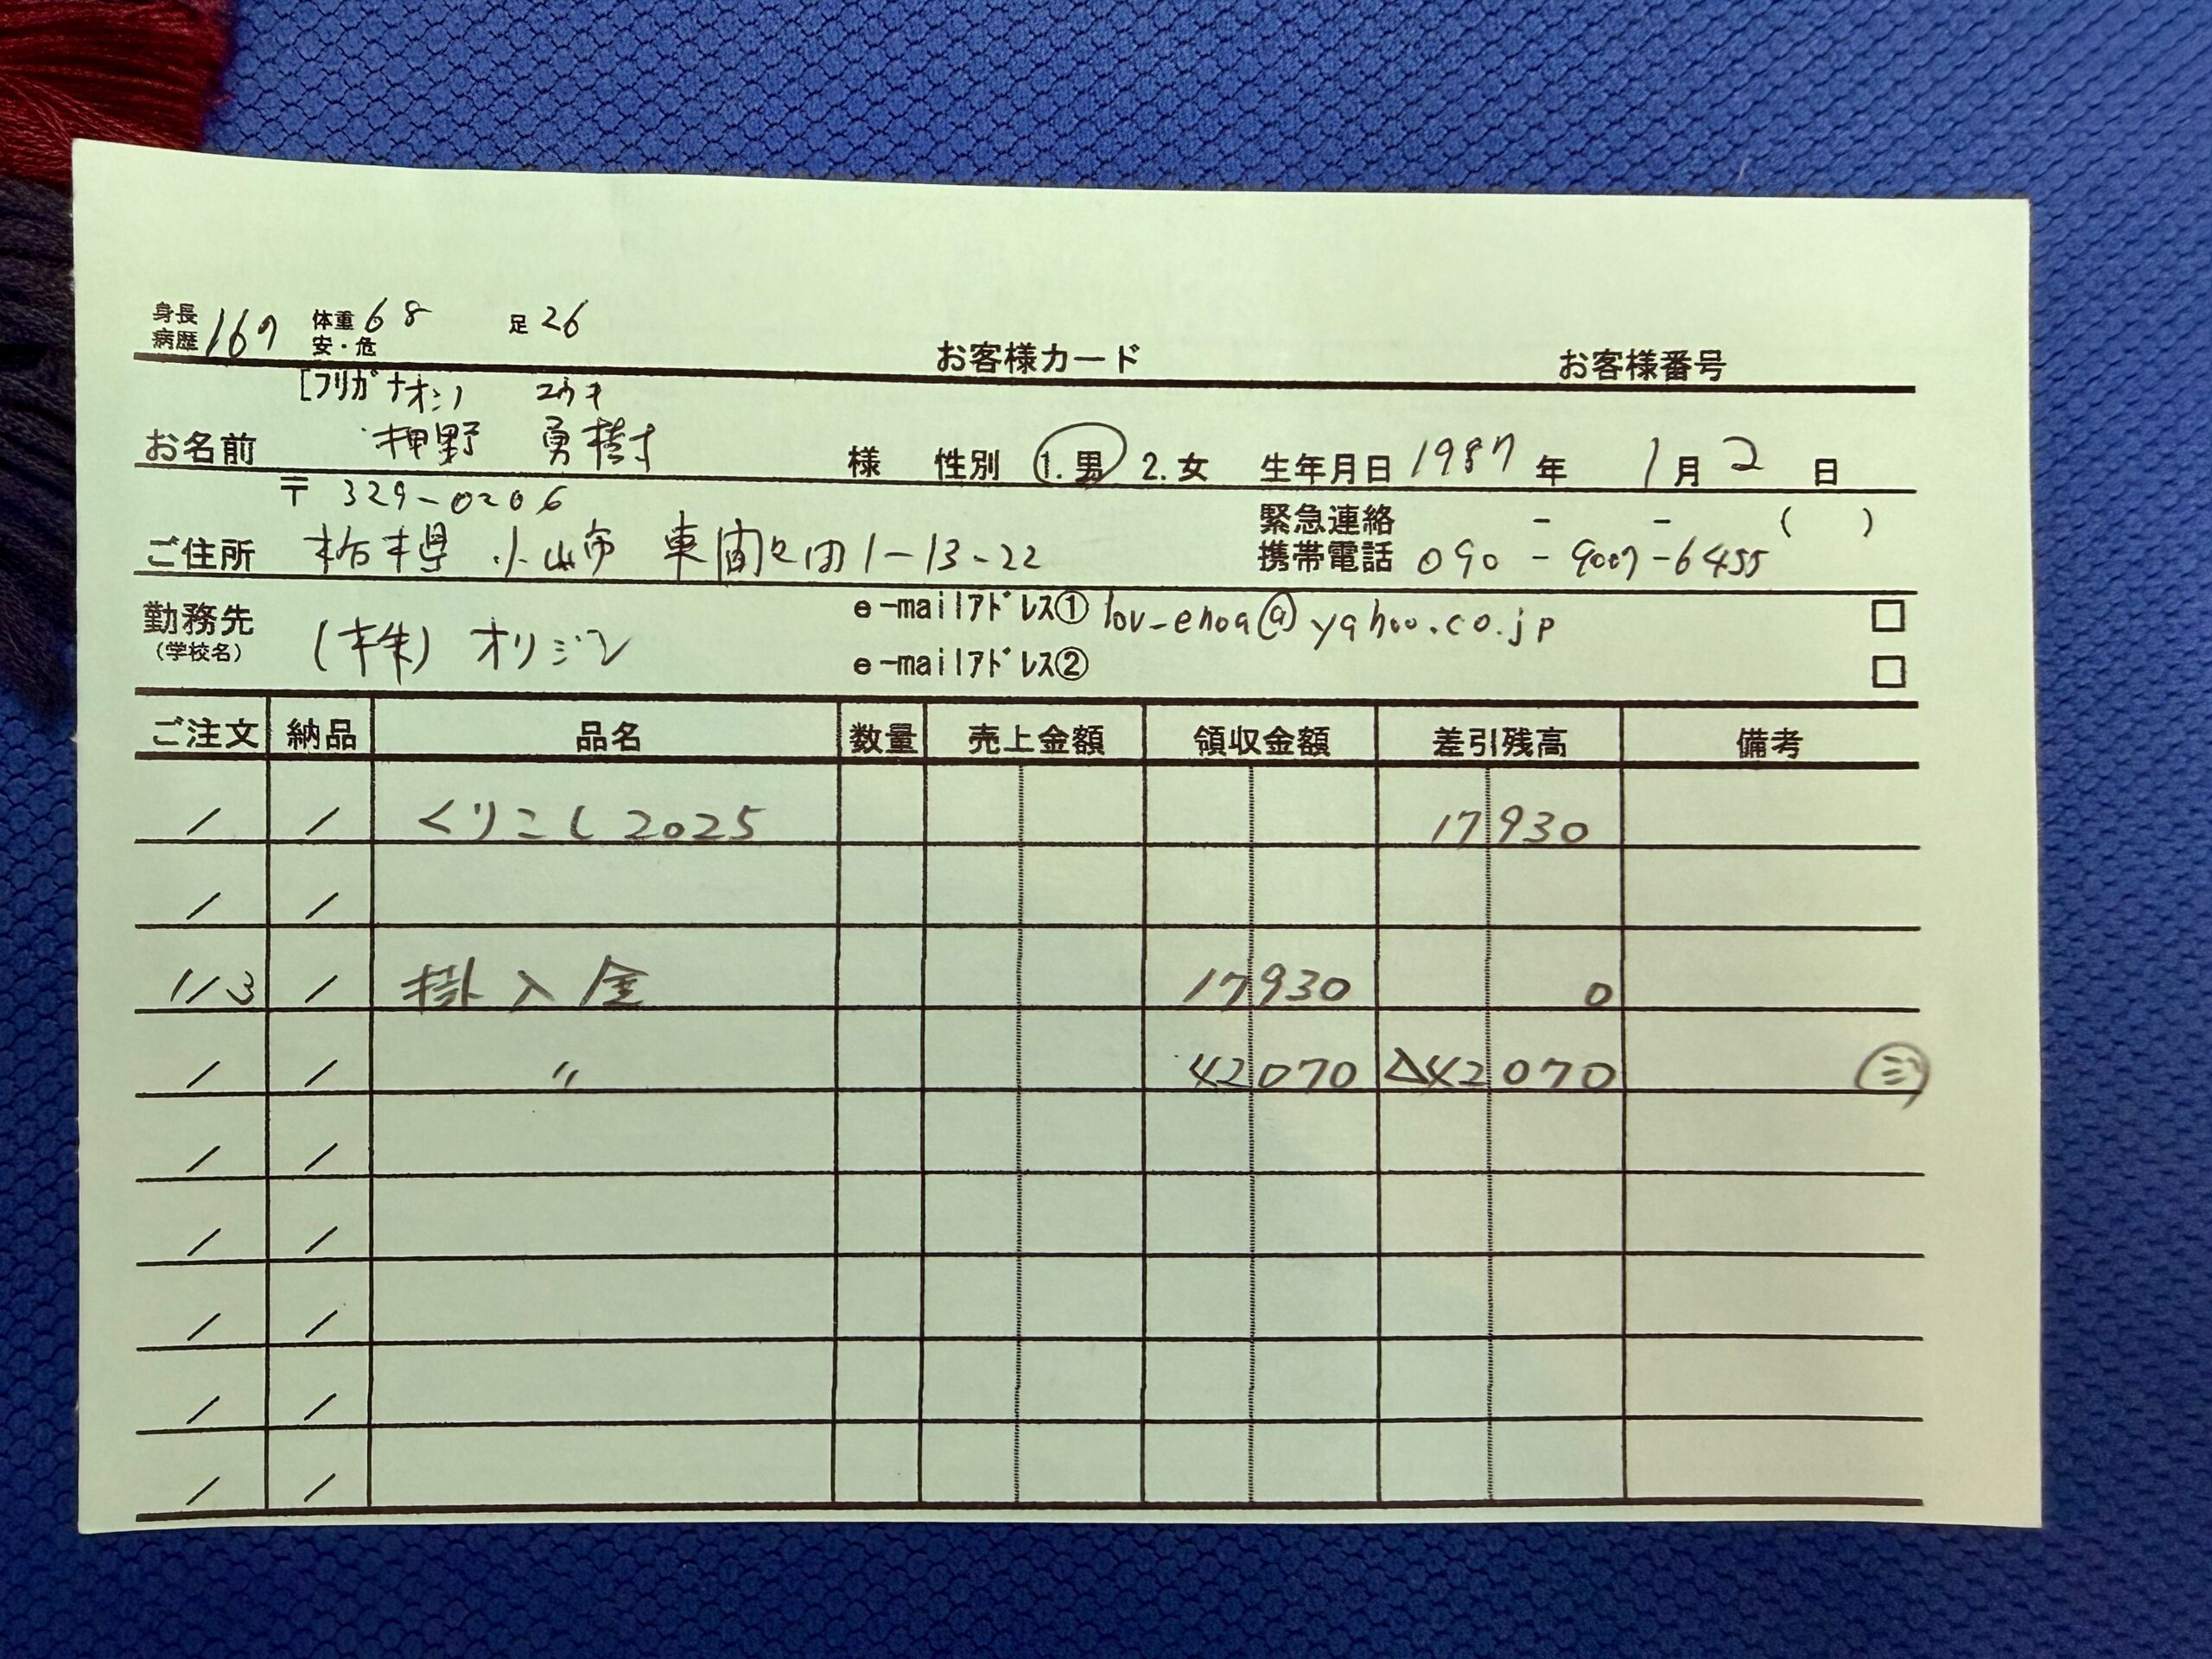 身長 167 体重 68 足 26
病歴 安・危
お客様カード お客様番号
[フリガナ オシノ ユウキ
お名前 押野 勇樹 様 性別 1.男 2.女 生年月日 1987年 1月 2日
〒 329-0206
緊急連絡 - - ( )
ご住所 栃木県 小山市 東間々田 1-13-22 携帯電話 090-9007-6455
勤務先 (株)オリジン e-mailアドレス① @yahoo.co.jp □
(学校名) e-mailアドレス② □
ご注文 納品 品名 数量 売上金額 領収金額 差引残高 備考
/ / くりこし2025 17930
/ /
1/3 / 掛入金 17930 0
/ / 〃 42070 △42070 ミ
/ /
/ /
/ /
/ /
/ /